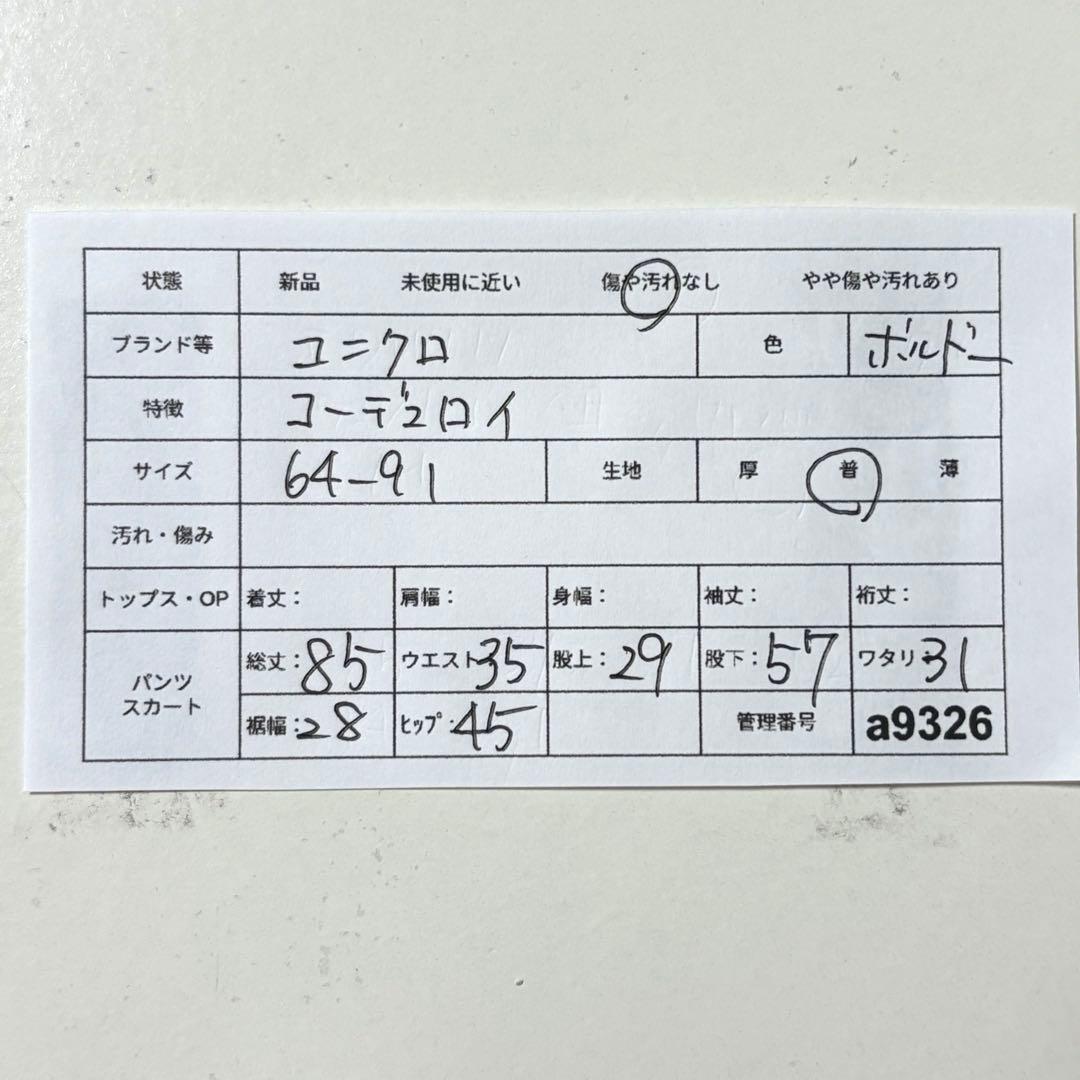 状態 新品 未使用に近い 傷や汚れなし やや傷や汚れあり
ブランド等 ユニクロ 色 ボルドー
特徴 コーデュロイ
サイズ 64-91 生地 厚 普 薄
汚れ・傷み
トップス・OP 着丈： 肩幅： 身幅： 袖丈： 裄丈：
パンツ スカート 総丈：85 ウエスト35 股上：29 股下：57 ワタリ31
裾幅：28 ヒップ：45 管理番号 a9326